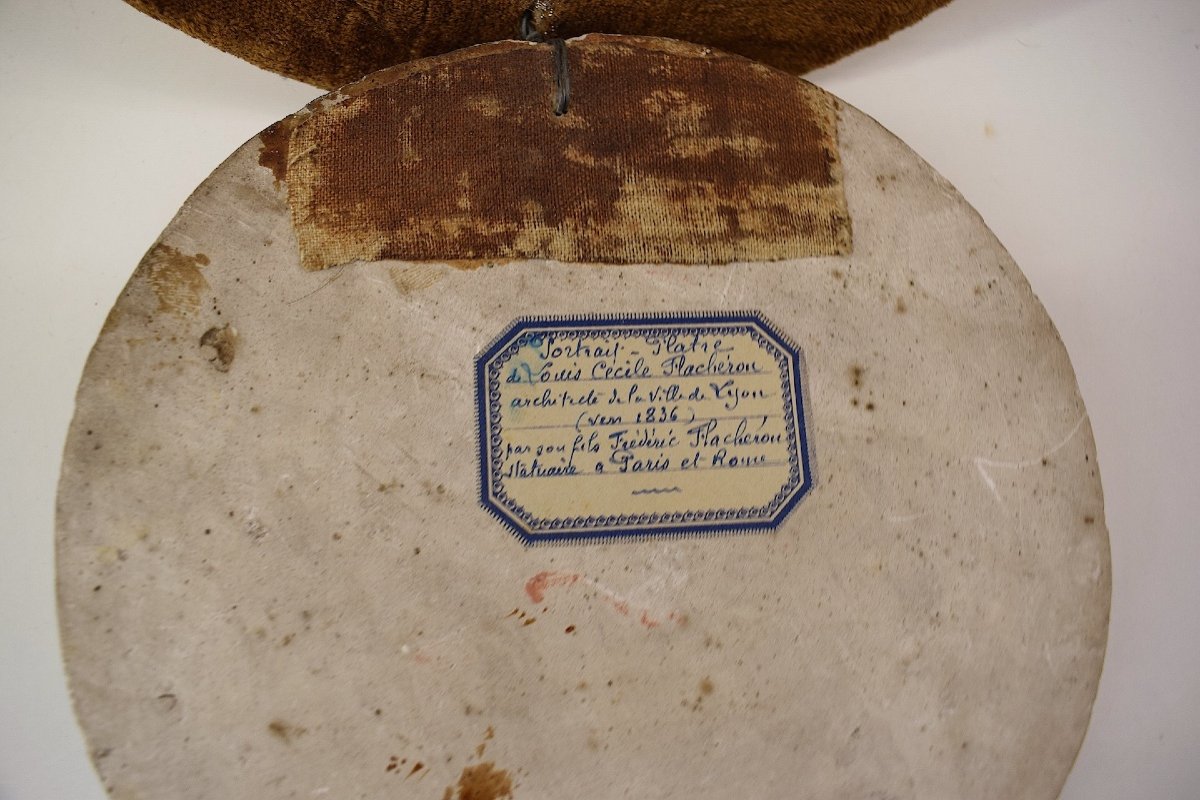 Portrait - Platre
de Louis Cécile Flachéron
architecte de la Ville de Lyon
(vers 1836)
par son fils Frédéric Flachéron
Statuaire a Paris et Rome